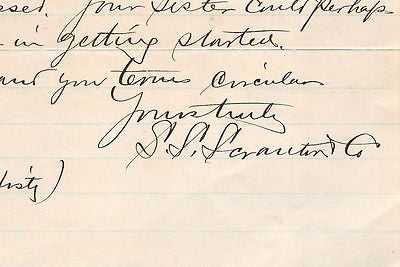 ssed. Your Sister Could perhaps
in getting started.
and you Terms Circular
Yours truly
S. S. Scranton & Co